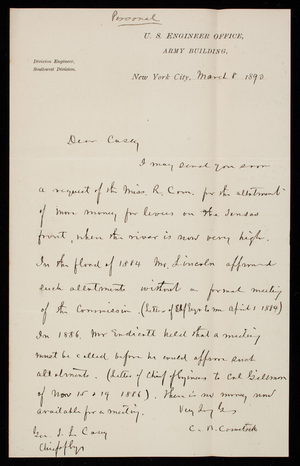 Personal
U. S. ENGINEER OFFICE,
ARMY BUILDING,
Division Engineer,
Southwest Division.
New York City, March 8 1890
Dear Casey
I may send you soon
a request of the Miss. R. Com. for the allotment
of more money for levees on the Tensas
front, where the river is now very high.
In the flood of 1884 Mr. Lincoln approved
such allotments without a formal meeting
of the Commission. (Letter of Chf Engrs to me April 1 1884)
In 1886. Mr Endicott held that a meeting
must be called before he could approve such
allotments. (Letters of Chief of Engineers to Col Gillmore
of Nov 15 & 19 1886). There is no money now
available for a meeting.
Very Truly Yrs
C. B. Comstock
Gen. T. L. Casey
Chief of Engrs